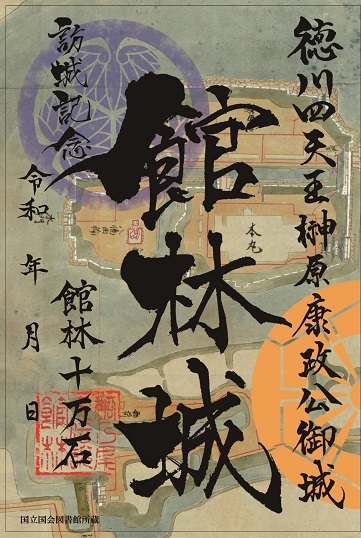 徳川四天王榊原康政公御城
館林城
本丸
訪城記念
令和 年 月 日
館林十万石
国立国会図書館所蔵